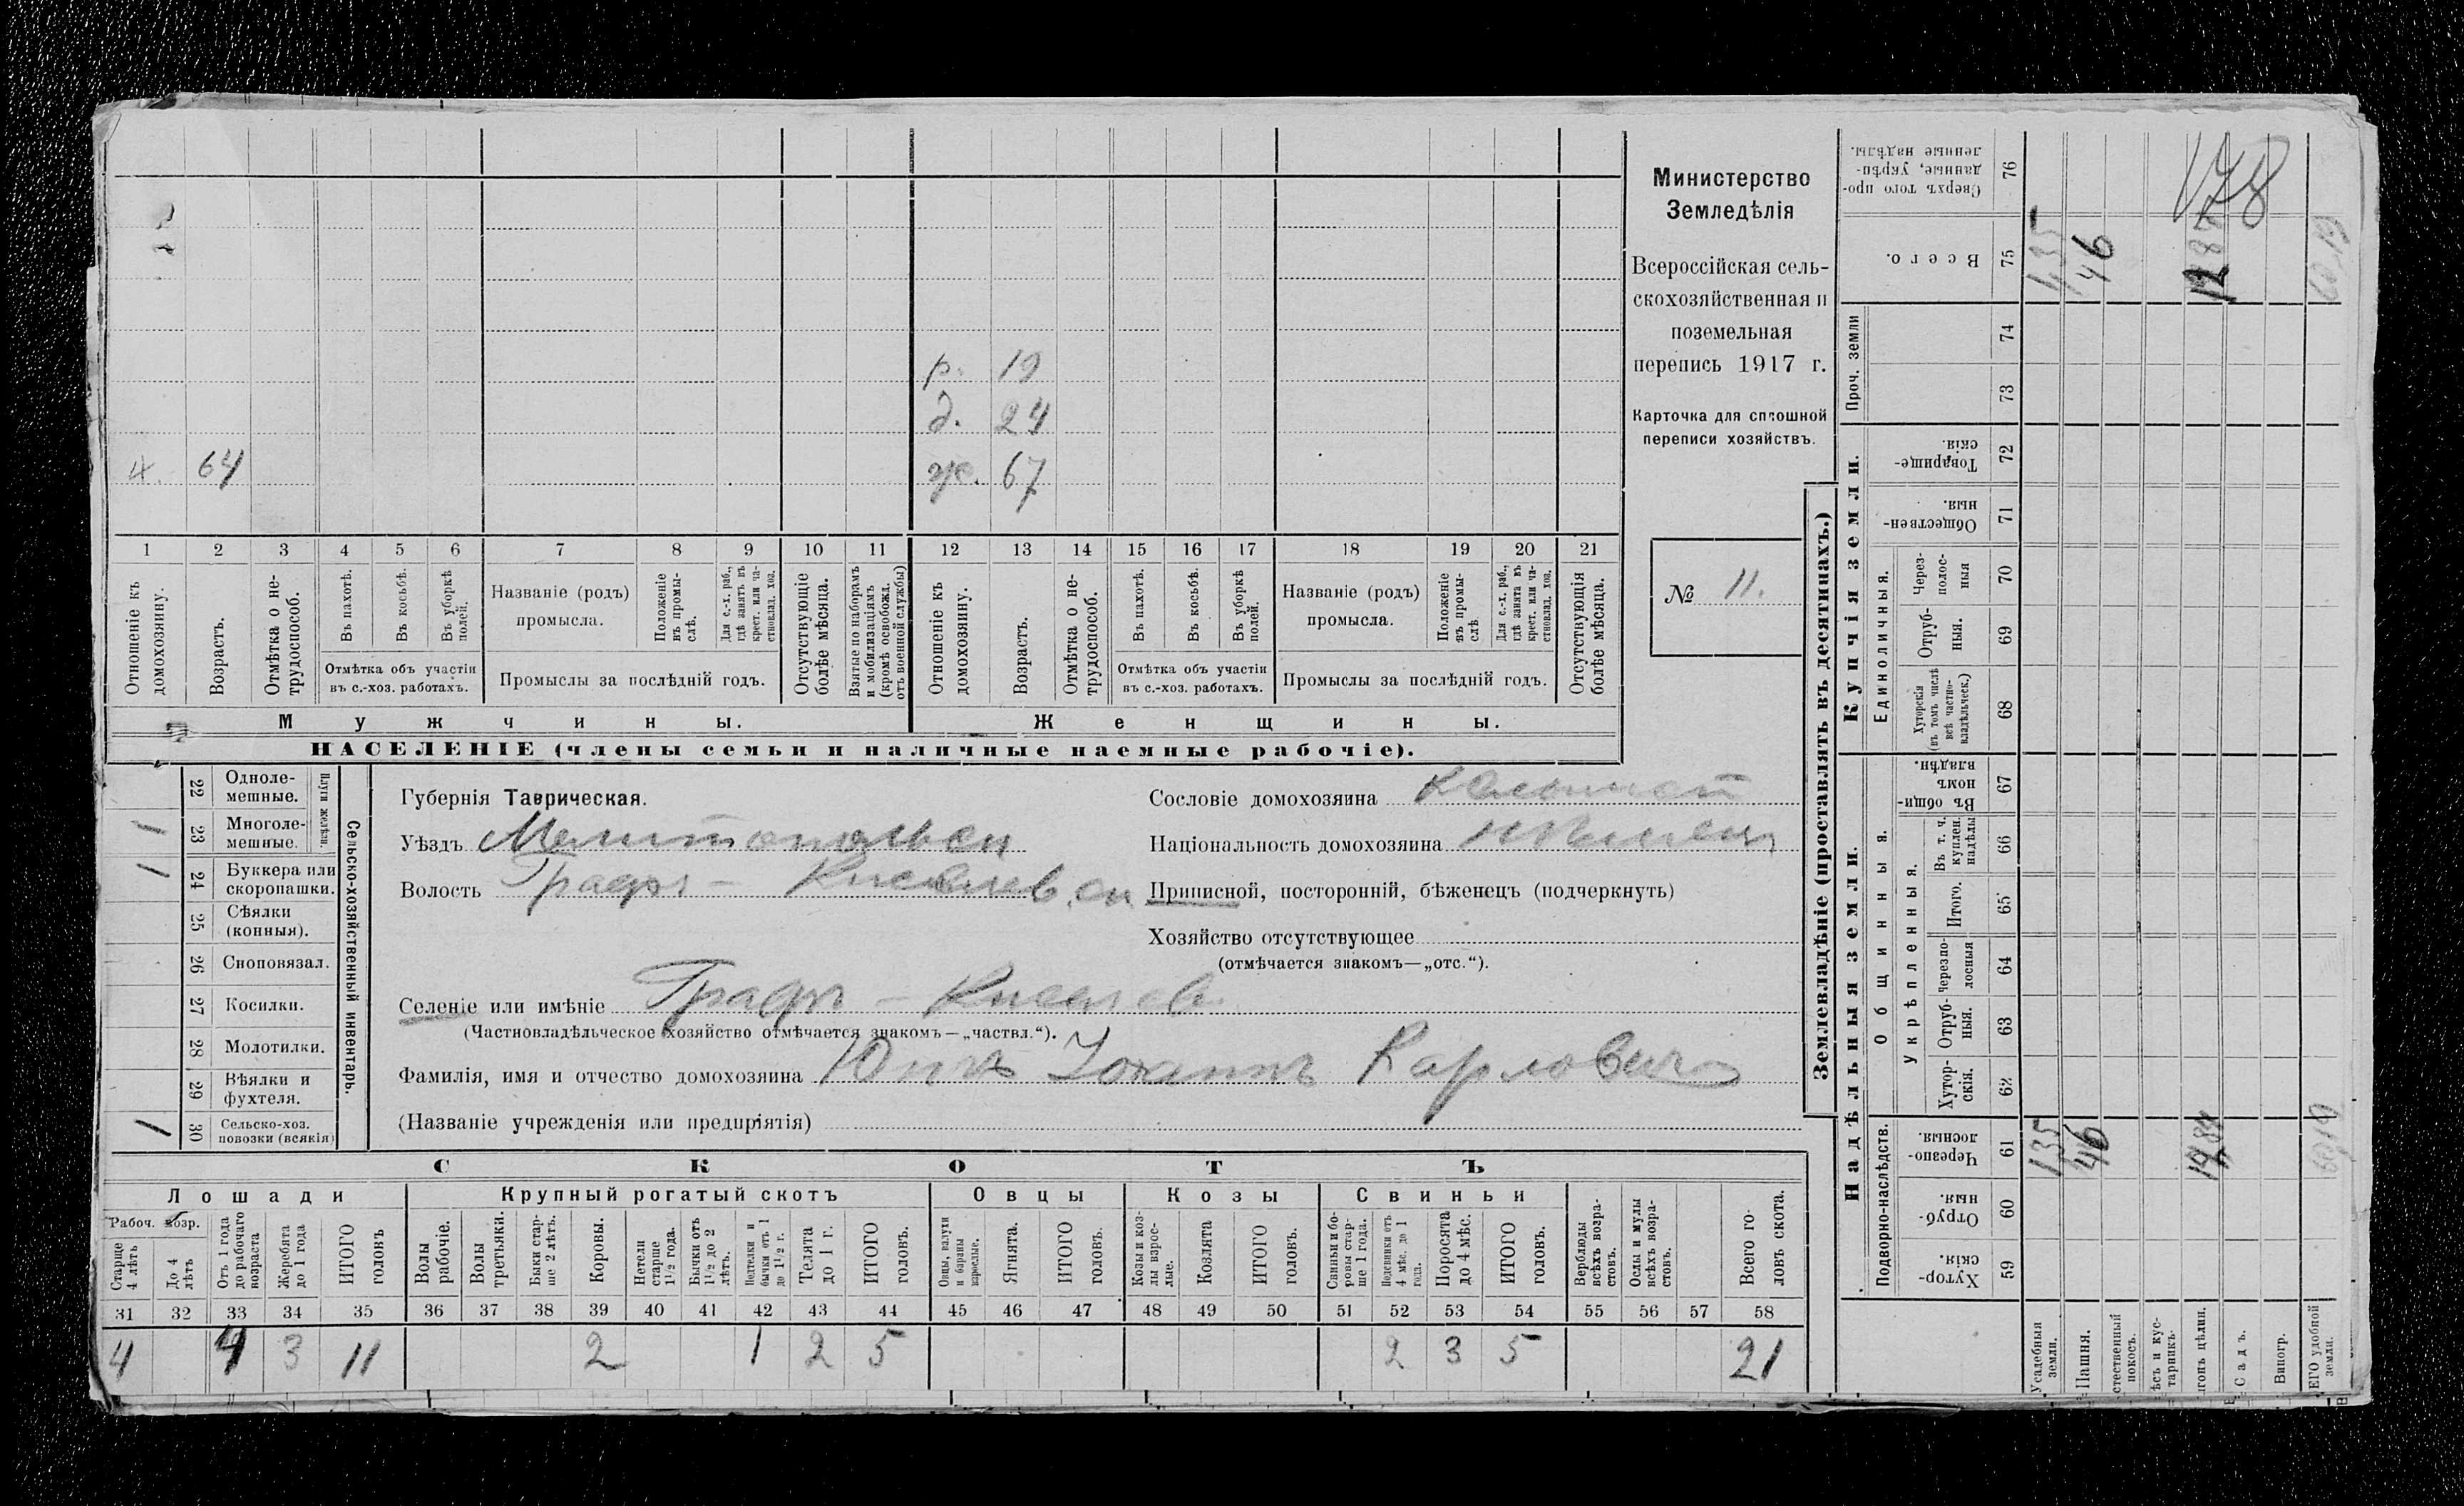 Министерство
Земледѣлія
Всероссійская сель-
скохозяйственная и
поземельная
перепись 1917 г.
Карточка для сплошной
переписи хозяйствъ.
№ 11.
р. 19
д. 24
х. 64 ж. 67
1 2 3 4 5 6 7 8 9 10 11 12 13 14 15 16 17 18 19 20 21
Отношеніе къ домохозяину.
Возрастъ.
Отмѣтка о не-трудоспособ.
Въ пахотѣ.
Въ косьбѣ.
Въ уборкѣ полей.
Отмѣтка объ участіи въ с.-хоз. работахъ.
Названіе (родъ) промысла.
Положеніе въ промы-слѣ.
Для с.-х. раб., гдѣ занятъ въ крест. или ча-стновлад. хоз.
Промыслы за послѣдній годъ.
Отсутствующіе болѣе мѣсяца.
Взятые по наборамъ и мобилизаціямъ (кромѣ освобожд. отъ военной службы)
Отношеніе къ домохозяину.
Возрастъ.
Отмѣтка о не-трудоспособ.
Въ пахотѣ.
Въ косьбѣ.
Въ уборкѣ полей.
Отмѣтка объ участіи въ с.-хоз. работахъ.
Названіе (родъ) промысла.
Положеніе въ промы-слѣ
Для с.-х. раб., гдѣ занята въ крест. или ча-стновлад. хоз.
Промыслы за послѣдній годъ.
Отсутствующія болѣе мѣсяца.
Мужчины. Женщины.
НАСЕЛЕНІЕ (члены семьи и наличные наемные рабочіе).
Сельско-хозяйственный инвентарь.
Плуги желѣзн.
22 Одноле-мешные.
1 23 Многоле-мешные.
1 24 Буккера или скоропашки.
25 Сѣялки (конныя).
26 Сноповязал.
27 Косилки.
28 Молотилки.
29 Вѣялки и фухтеля.
1 30 Сельско-хоз. повозки (всякія)
Губернія Таврическая.
Уѣздъ Мелитопольскій
Волость Графъ-Киселевск
Сословіе домохозяина Колонист
Національность домохозяина нѣмец
Приписной, посторонній, бѣженецъ (подчеркнуть)
Хозяйство отсутствующее
(отмѣчается знакомъ—„отс.“).
Селеніе или имѣніе Графъ - Киселев
(Частновладѣльческое хозяйство отмѣчается знакомъ—„частвл.“).
Фамилія, имя и отчество домохозяина Иоганнъ Карловичъ
(Названіе учрежденія или предпріятія)
СКОТЪ
Лошади Крупный рогатый скотъ Овцы Козы Свиньи
Рабоч. возр.
Старше 4 лѣтъ
До 4 лѣтъ
Отъ 1 года до рабочаго возраста
Жеребята до 1 года
ИТОГО головъ
Волы рабочіе.
Волы третьяки.
Быки стар-ше 2 лѣтъ.
Коровы.
Нетели старше 1½ года.
Бычки отъ 1½ до 2 лѣтъ.
Подтелки и бычки отъ 1 до 1½ г.
Телята до 1 г.
ИТОГО головъ.
Овцы, валухи и бараны взрослые.
Ягнята.
ИТОГО головъ.
Козы и коз-лы взрос-лые.
Козлята
ИТОГО головъ.
Свиньи и бо-ровы стар-ше 1 года.
Подсвинки отъ 4 мѣс. до 1 года.
Поросята до 4 мѣс.
ИТОГО головъ.
Верблюды всѣхъ возра-стовъ.
Ослы и мулы всѣхъ возра-стовъ.
Всего го-ловъ скота.
31 32 33 34 35 36 37 38 39 40 41 42 43 44 45 46 47 48 49 50 51 52 53 54 55 56 57 58
4 4 3 11 2 1 2 5 2 3 5 21
Землевладѣніе (проставлять въ десятинахъ.)
Надѣльныя земли. Купчія земли. Проч. земли
Подворно-наслѣдств. Общинныя. Единоличныя.
Укрѣпленныя.
Хутор-скія. 59
Отруб-ныя. 60
Черезпо-лосныя. 61
Хутор-скія. 62
Отруб-ныя. 63
Черезпо-лосныя 64
Итого. 65
Въ т. ч. куплен. надѣлы 66
Въ общи-номъ владѣн. 67
Хуторскія (въ томъ числѣ всѣ частно-владѣльческ.) 68
Отруб-ныя. 69
Через-полос-ныя 70
Обществен-ныя. 71
Товарище-скія. 72
73
74
Всего. 75
Сверхъ того про-данные, укрѣп-ленные надѣлы. 76
178
Усадебныя земли. 135
Пашня. 46 46
стественный покосъ.
ѣсъ и кус-тарникъ.
гонъ цѣлин.
Садъ.
Виногр.
ЕГО удобной земли.